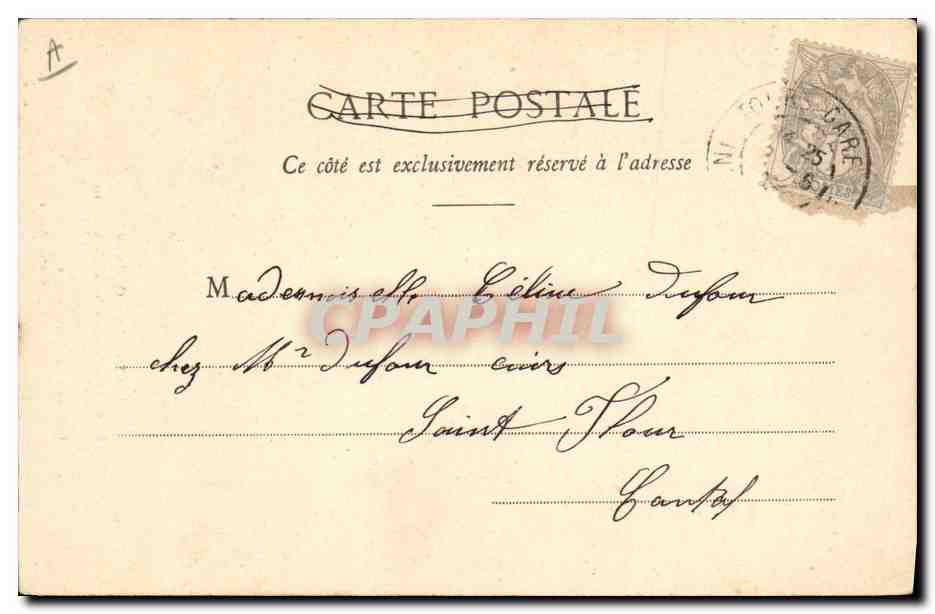 A
CARTE POSTALE
GARE
25
Ce côté est exclusivement réservé à l'adresse
Mademoiselle Céline Dufour
CPAPHIL
chez Mr Dufour cuirs
Saint Flour
Cantal